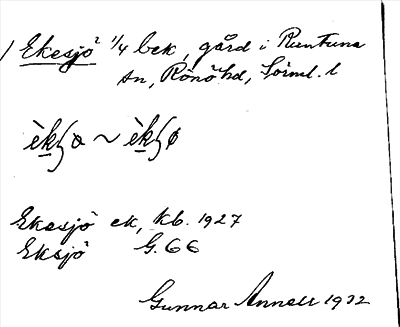 Ekesjö 1/4 bek, gård i Runtuna
sn, Rönö hd, Sörml. l
èkʃɷ ~ èkʃø
Ekesjö ek, kb. 1927
Eksjö G. 66
Gunnar Annell 1932